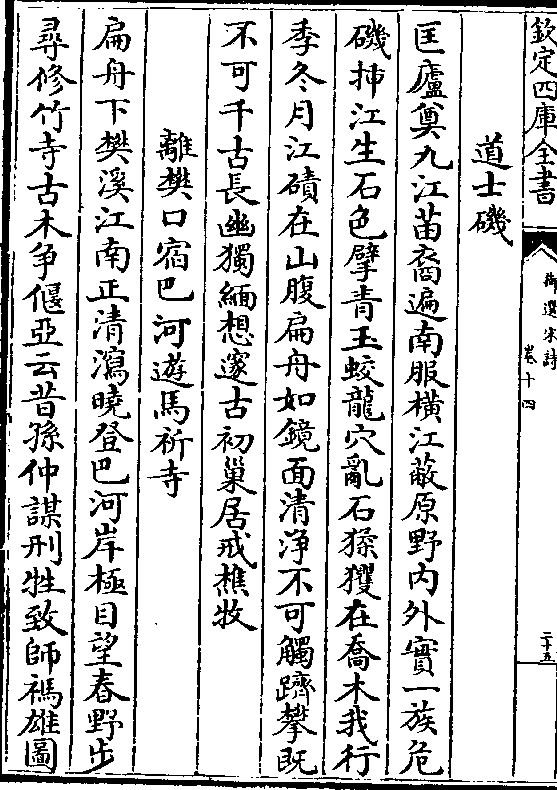 欽定四庫全書
御選宋詩
卷十四
二十五
道士磯
匡廬奠九江苗裔遍南服橫江蔽原野内外實一族危
磯揷江生石色擘青玉蛟龍穴亂石猱玃在喬木我行
季冬月江磧在山腹扁舟如鏡面清浄不可觸躋攀既
不可千古長幽獨緬想邃古初巢居戒樵牧
離樊口宿巴河遊馬祈寺
扁舟下樊溪江南正清瀉曉登巴河岸極目望春野步
尋修竹寺古木争偃亞云昔孫仲謀刑牲致師禡雄圖